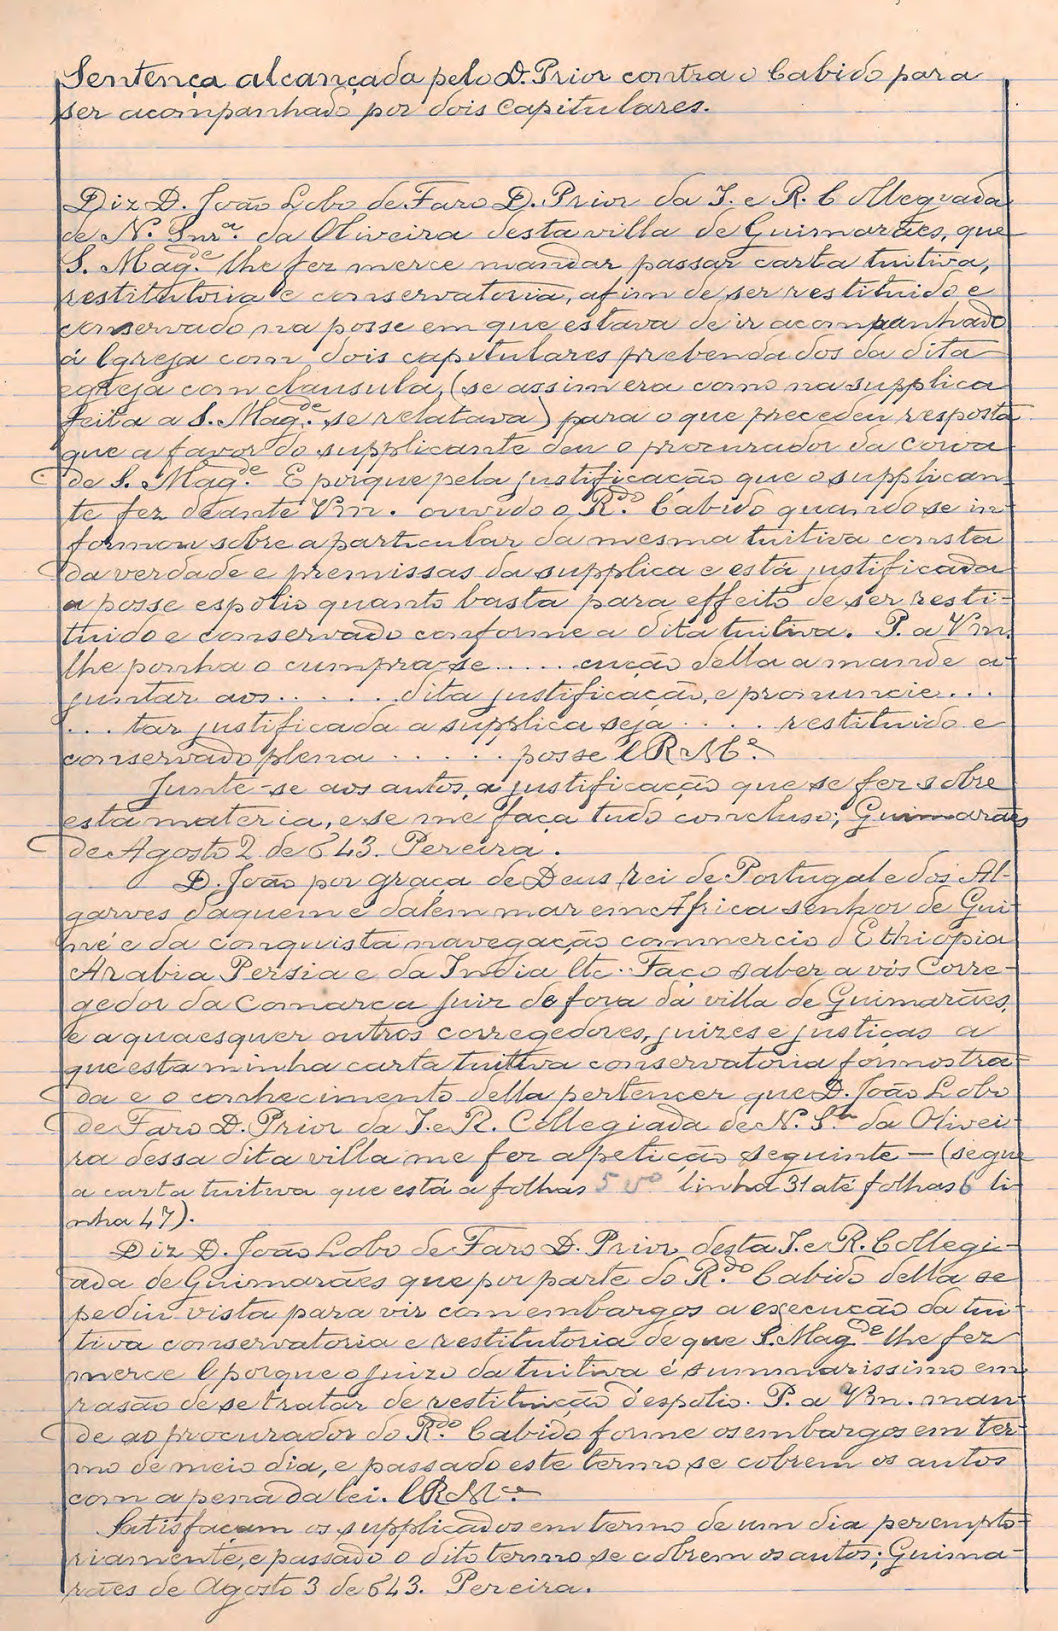 Sentença alcançada pelo D. Prior contra o Cabido para
ser acompanhado por dois Capitulares.
Diz D. João Lobo de Faro D. Prior da I. e R. Collegiada
de N. Snrª. da Oliveira desta villa de Guimarães, que
S. Mag.de lhe fez merce mandar passar carta tuitiva,
restitutoria e conservatoria, afim de ser restituido e
conservado na posse em que estava de ir acompanhado
á Igreja com dois capitulares prebendados da dita
egreja com clausula, (se assim era como na supplica
feita a S. Mag.de se relatava) para o que precedeu resposta
que a favor do supplicante deu o procurador da coroa
de S. Mag.de E porque pela justificação que o supplican-
te fez deante Vm. ouvido o R.do Cabido quando se in-
formou sobre a particular da mesma tuitiva consta
da verdade e premissas da supplica e está justificada
a posse espolio quanto basta para effeito de ser resti-
tuido e conservado conforme a dita tuitiva. P. a Vm.
lhe ponha o cumpra-se ..... cução della a mande a-
juntar aos ..... dita justificação, e pronuncie...
... tar justificada a supplica seja .... restituido e
conservado plena ..... posse E R M.e
Junte-se aos autos, a justificação que se fez sobre
esta materia, e se me faça tudo concluso; Guimarães
de Agosto 2 de 643. Pereira.
D. João por graça de Deus rei de Portugal e dos Al-
garves daquem e dalem mar em Africa senhor de Gui-
né e da conquista navegação commercio d'Ethiopia
Arabia Persia e da India Etc. Faço saber a vós Corre-
gedor da Comarca Juiz de fora da villa de Guimarães,
e a quaesquer outros corregedores, juizes e justiças a
que esta minha carta tuitiva conservatoria for mostra-
da e o conhecimento della pertencer que D. João Lobo
de Faro D. Prior da I. e R. Collegiada de N. S.ra da Olivei-
ra dessa dita villa me fez a petição seguinte — (segue
a carta tuitiva que está a folhas 5 vº linha 31 até folhas 6 li-
nha 47).
Diz D. João Lobo de Faro D. Prior desta I. e R. Collegi-
ada de Guimarães que por parte do R.do Cabido della se
pediu vista para vir com embargos a execução da tui-
tiva conservatoria e restitutoria de que S. Mag.de lhe fez
merce E porque o juizo da tuitiva é summarissimo em
rasão de se tratar de restituição d'espolio. P. a Vm. man-
de ao procurador do R.do Cabido forme os embargos em ter-
mo de meio dia, e passado este termo se cobrem os autos
com a pena da lei. E R M.ce
Satisfaçam os supplicados em termo de um dia perempto-
riamente, e passado o dito termo se cobrem os autos; Guima-
rães de Agosto 3 de 643. Pereira.